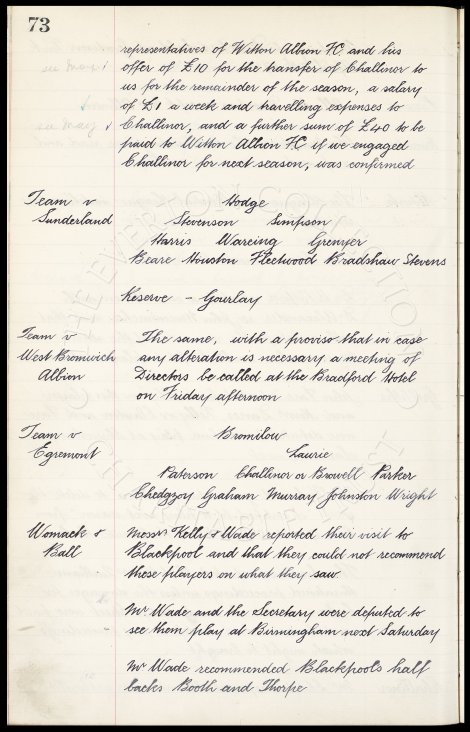 73
representatives of Witton Albion FC and his
offer of £10 for the transfer of Challinor to
us for the remainder of the season, a salary
of £1 a week and travelling expenses to
Challinor, and a further sum of £40 to be
paid to Witton Albion FC if we engaged
Challinor for next season, was confirmed
Team v Hodge
Sunderland Stevenson Simpson
Harris Wareing Grenyer
Beare Houston Fleetwood Bradshaw Stevens
Reserve - Gourlay
Team v The same, with a proviso that in case
West Bromwich any alteration is necessary a meeting of
Albion Directors be called at the Bradford Hotel
on Friday afternoon
Team v Bromilow
Egremont Laurie
Paterson Challinor or Browell Parker
Chedgzoy Graham Murray Johnston Wright
Womack & Messrs Kelly & Wade reported their visit to
Ball Blackpool and that they could not recommend
these players on what they saw.
Mr Wade and the Secretary were deputed to
see them play at Birmingham next Saturday
Mr Wade recommended Blackpools half
backs Booth and Thorpe